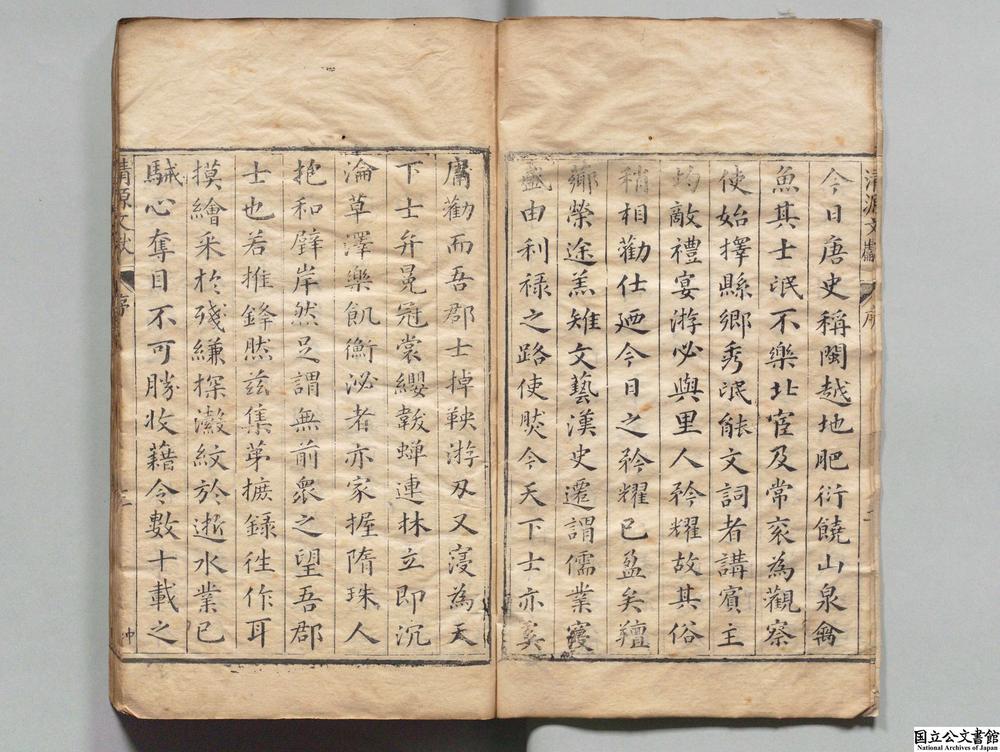 清源文獻 序 二
今日唐史稱閩越地肥衍饒山泉禽
魚其士民不樂北宦及常衮為觀察
使始擇縣鄉秀民能文詞者講賓主
均敵禮宴游必與里人矜耀故其俗
稍相勸仕迺今日之矜耀已盈矣羶
薌榮途羔雉文藝漢史遷謂儒業寖
盛由利祿之路使肰今天下士亦奚
庸勸而吾郡士掉鞅游刃又寖為天
下士弁冕冠裳纓韍蟬連林立即沉
淪草澤樂飢衡泌者亦家握隋珠人
抱和璧岸然足謂無前衆之望吾郡
士也若推鋒肰茲集苐摭錄徃作耳
摸繪采於殘縑探瀫紋於逝水業已
駴心奪目不可勝收藉令數十載之
清源文獻 序 三 冲
国立公文書館
National Archives of Japan